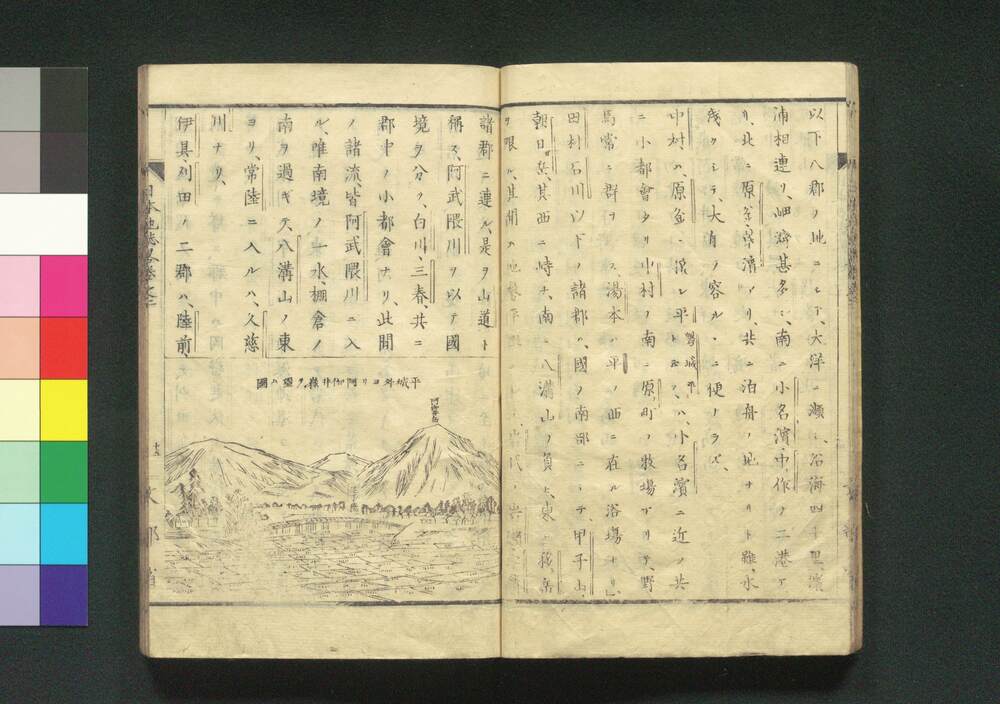 以下八郡ノ地ニシテ、大洋ニ瀕シ、沿海四十里、濱
浦相連リ、岫濟甚多シ、南ニ小名濱、中作ノ二港ア
リ、北ニ原釜ノ濱アリ、共ニ泊舟ノ地ナリト雖、水
淺クシテ、大舶ヲ容ルヽニ便ナラズ、
中村ハ、原釜ニ濱シ、平 磐城平 ハ、小名濱ニ近ク、共
ニ小都會タリ、中村ノ南ニ原町ノ牧場アリテ、野
馬常ニ群ヲス、湯本ハ平ノ西ニ在ル浴場ナリ、
田村石川以下ノ諸郡ハ、國ノ南部ニシテ、甲子山、
朝日岳、其西ニ峙チ、南ニ八溝山ヲ負ヒ、東
ヲ限ル、其間ノ地
諸郡ニ連ル、是ヲ山道ト
稱ス、阿武隈川ヲ以テ國
境ヲ分ツ、白川、三春、共ニ
郡中ノ小都會ナリ、此間
ノ諸流、皆阿武隈川ニ入
ル、唯南境ノ一水、棚倉ノ
南ヲ過ギテ、八溝山ノ東
ヨリ、常陸ニ入ルハ、久慈
川ナリ、
伊具、刈田ノ二郡ハ、陸前、
平城外ヨリ阿伽井嶽ヲ望ム圖
日本地誌
文部省